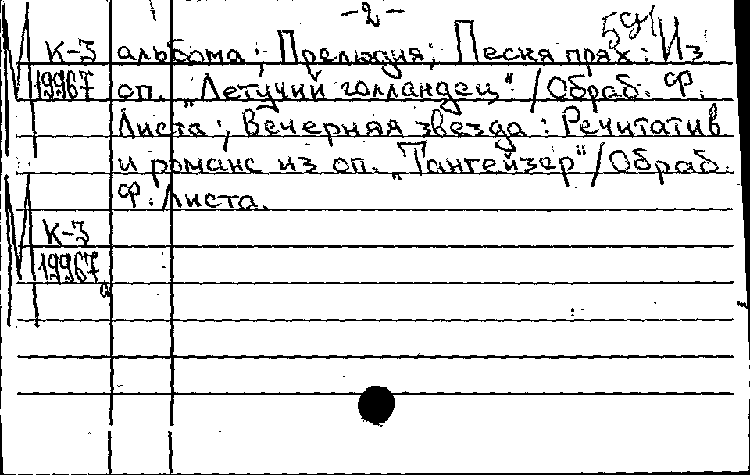 -2-
591
М К-3 альбома; Прелюдия; Песня прях: Из
19967 оп. „Летучий голландец" / Обраб. Ф.
Листа; Вечерняя звезда: Речитатив
и романс из оп. „Тангейзер" / Обраб.
Ф. Листа.
М К-3
19967а